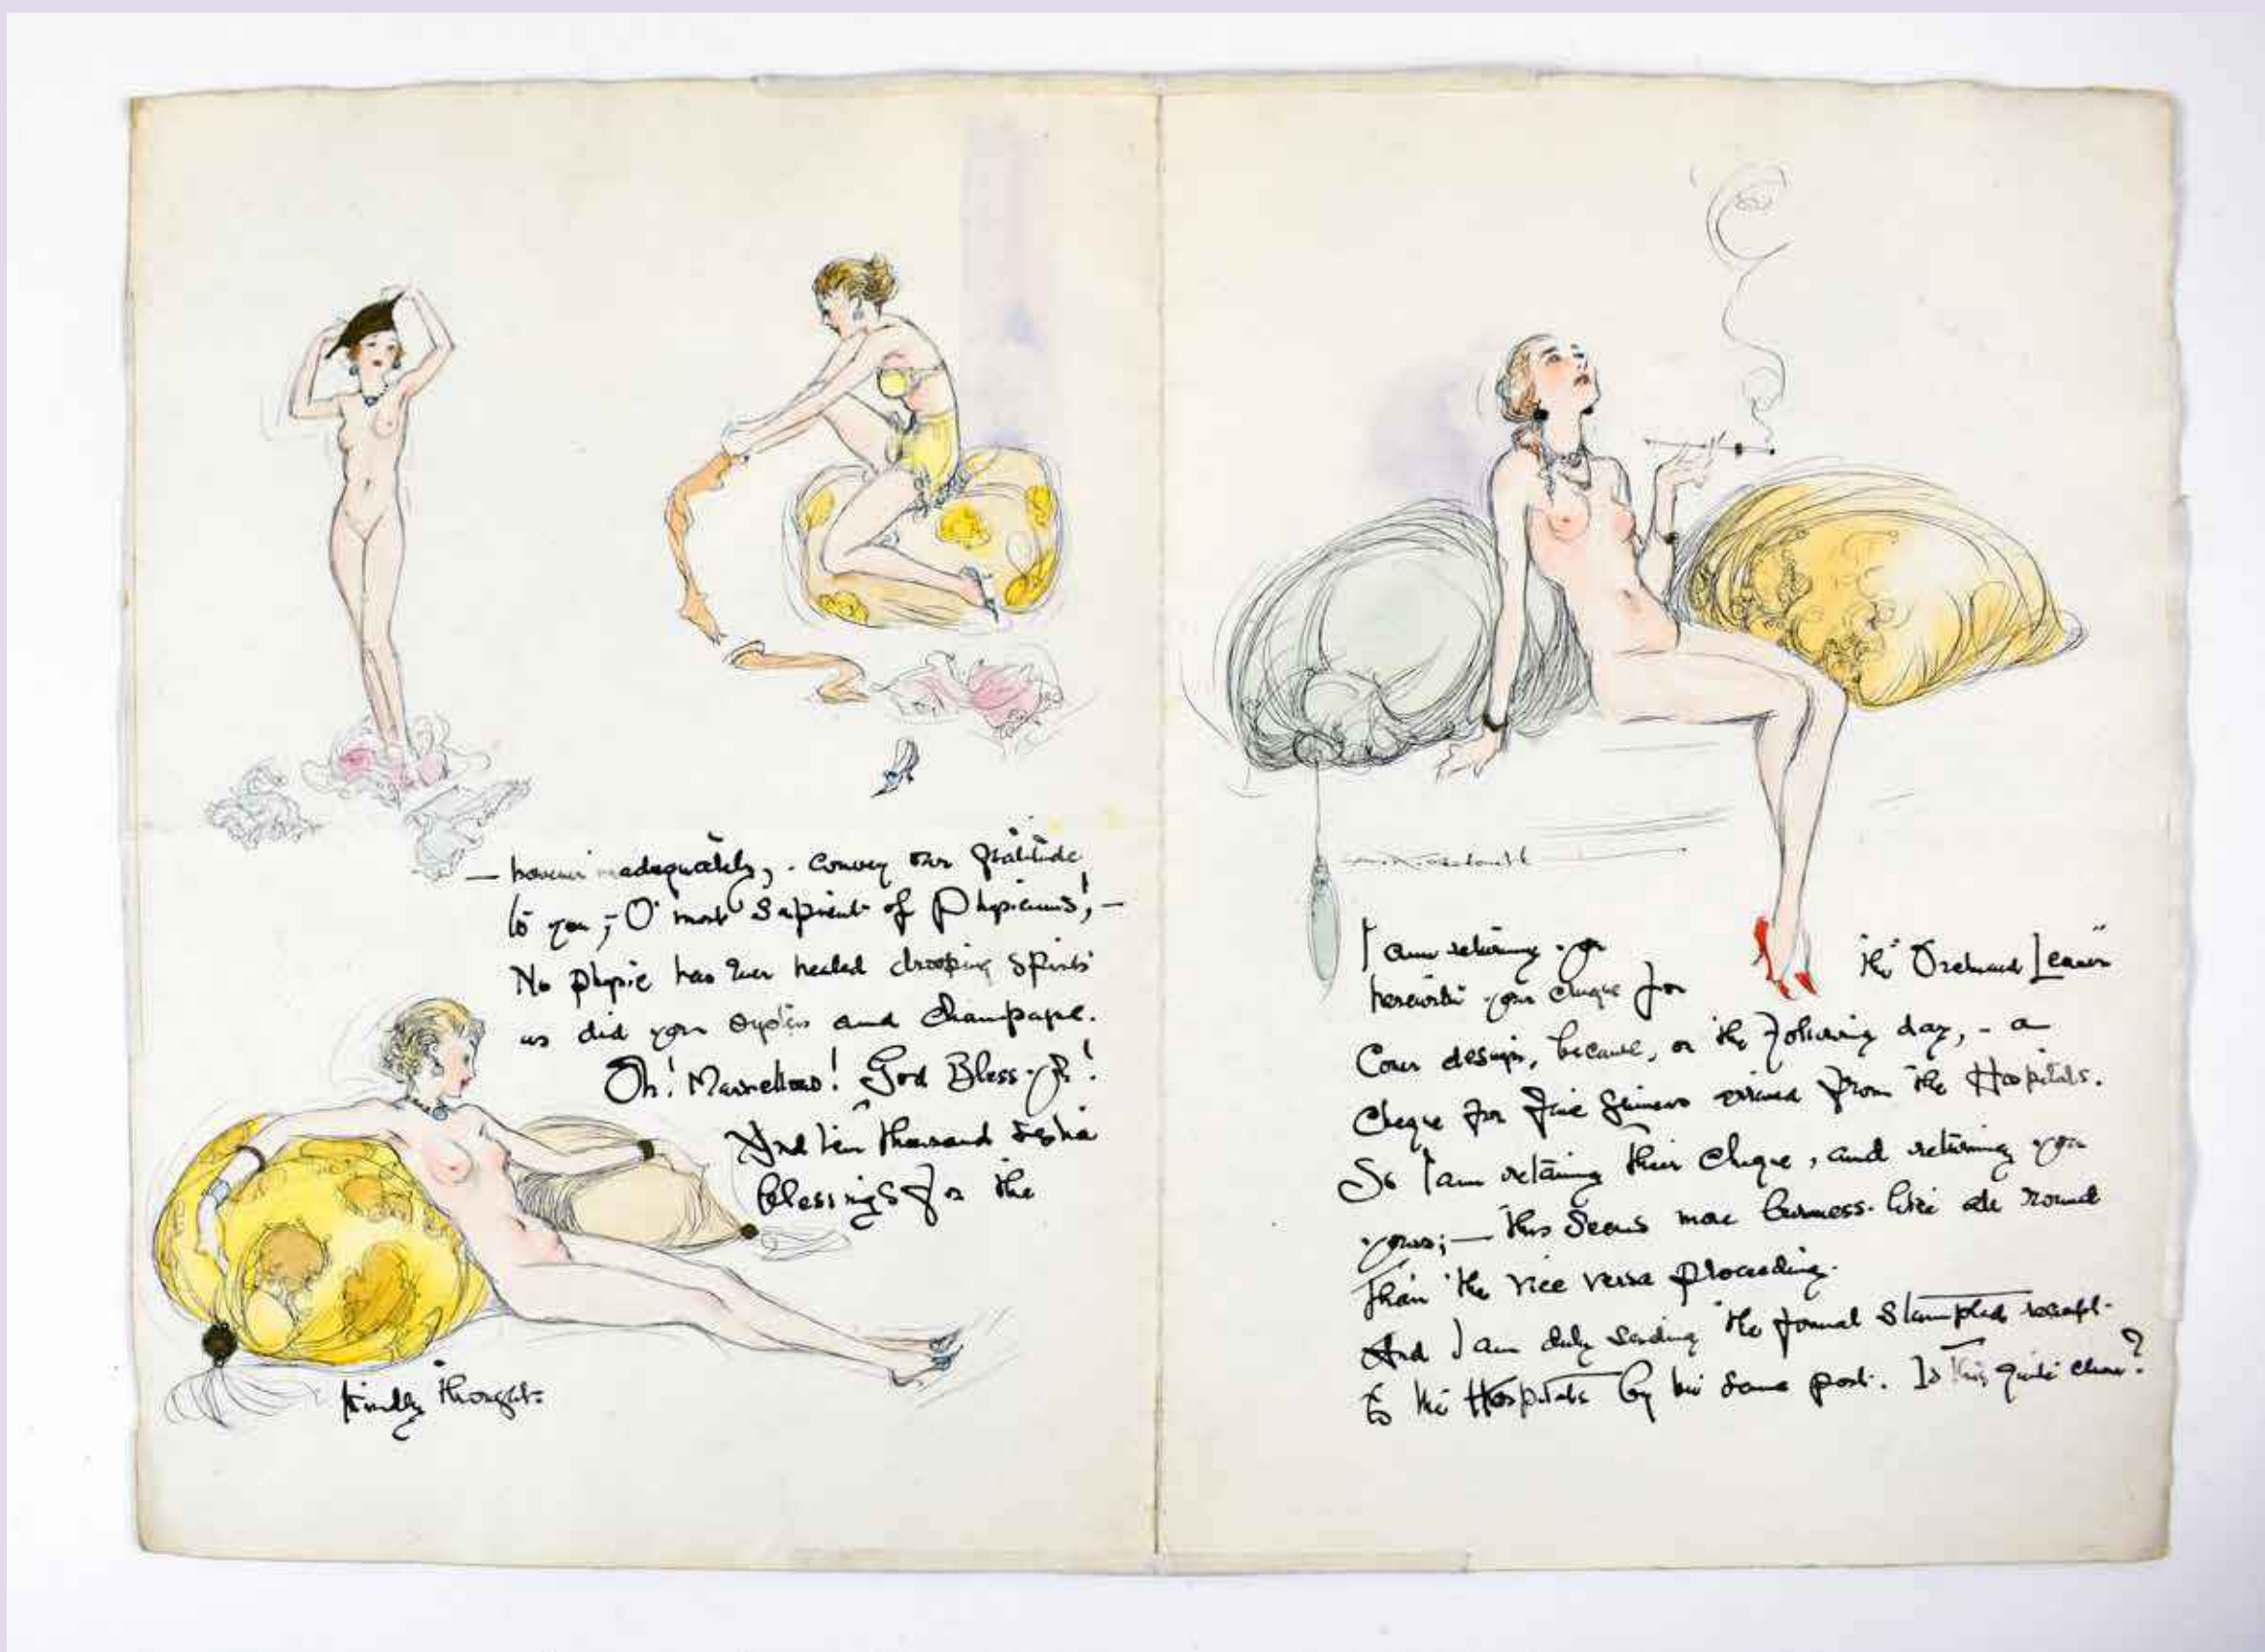 — however inadequately, - convey our gratitude
to you, - O' most Sapient of Physicians!, -
No physic has ever healed drooping spirits
as did your oysters and champagne.
Oh! Marvellous! God Bless you!
And ten thousand
blessings for the
kindly thought.
I am returning you
herewith your cheque for the "Orchard Leaves"
Cover design, because, on the following day, - a
Cheque for five Guineas arrived from the Hospitals.
So I am retaining their cheque, and returning you
yours; — this seems more business-like all round
than the vice versa proceeding.
And I am duly sending the formal stamped receipt
to the Hospitals by same post. Is this quite clear?